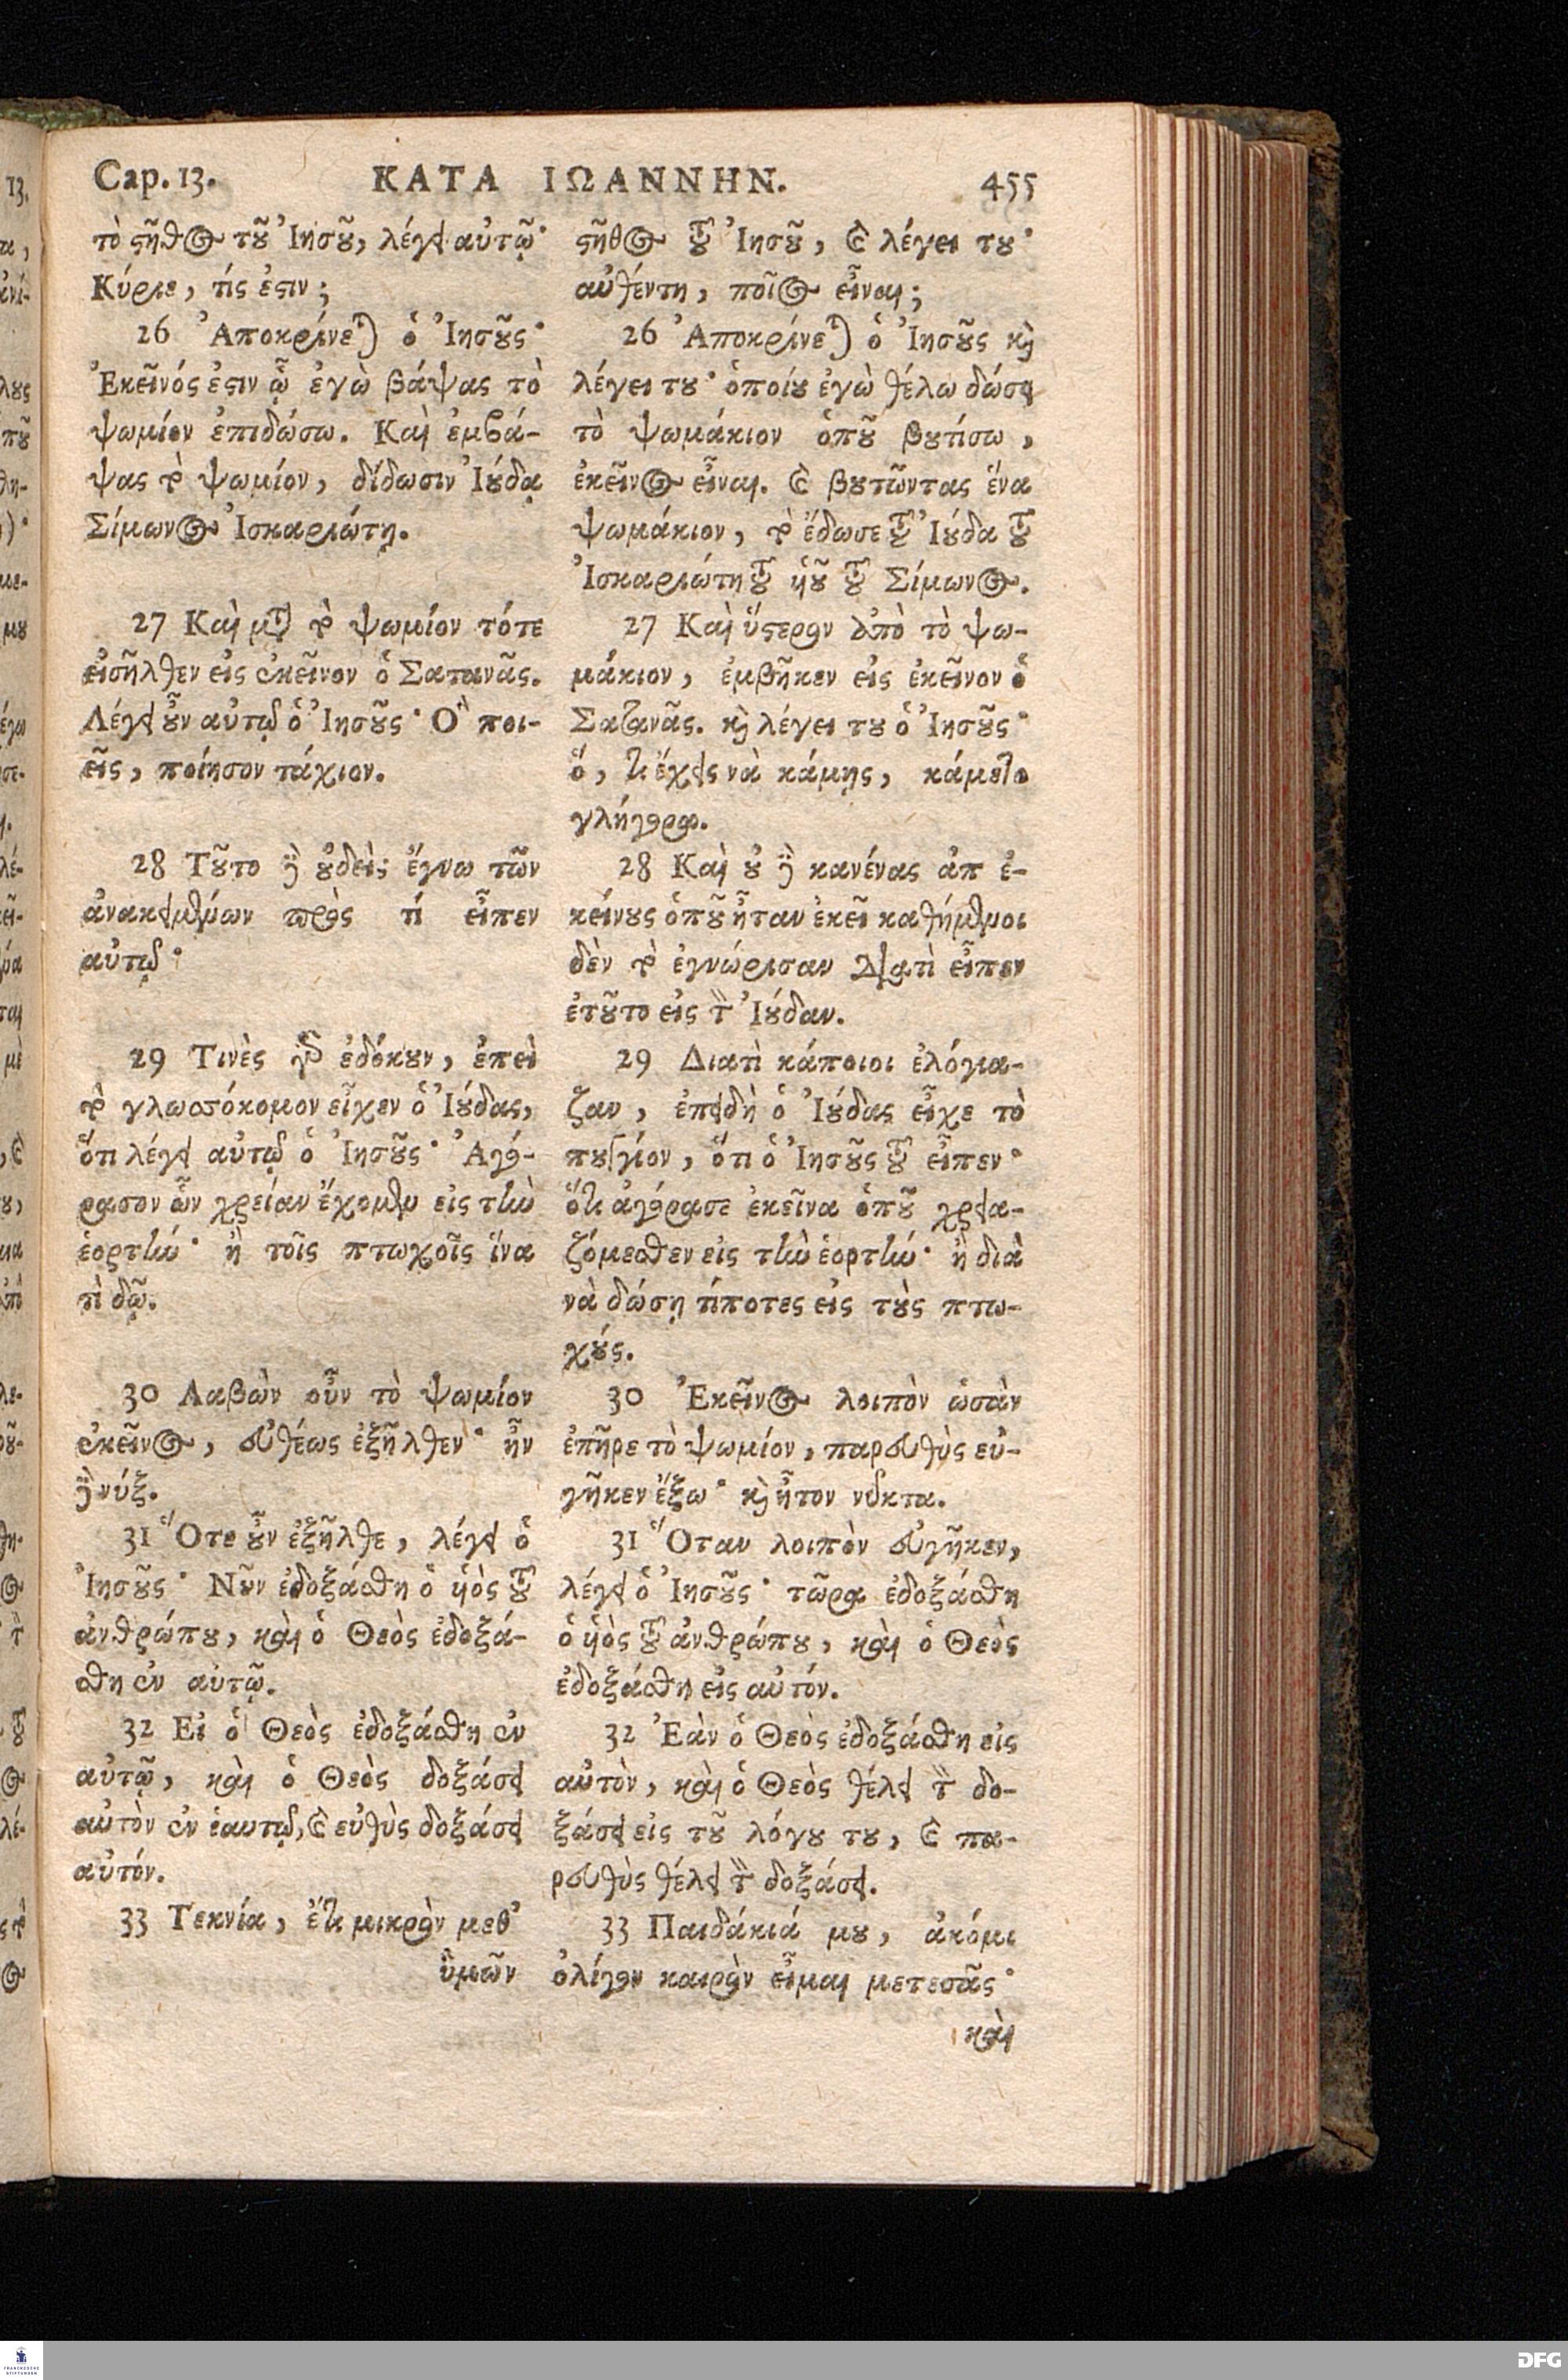 Cap. 13. ΚΑΤΑ ΙΩΑΝΝΗΝ. 455
τὸ ϛῆθος τȣ͂ Ἰησȣ͂, λέγει αὐτῷ·
Κύριε, τίς ἐϛιν;
26 Ἀποκρίνεται ὁ Ἰησȣ͂ς·
Ἐκεῖνός ἐϛιν ᾧ ἐγὼ βάψας τὸ
ψωμίον ἐπιδώσω. Καὶ ἐμβά-
ψας τὸ ψωμίον, δίδωσιν Ἰȣ́δᾳ
Σίμωνος Ἰσκαριώτῃ.
27 Καὶ μετὰ τὸ ψωμίον τότε
εἰσῆλθεν εἰς ἐκεῖνον ὁ Σατανᾶς.
Λέγει ȣ̓͂ν αὐτῷ ὁ Ἰησȣ͂ς· Ὃ ποι-
εῖς, ποίησον τάχιον.
28 Τȣ͂το δὲ ȣ̓δεὶς ἔγνω τῶν
ἀνακειμένων πρὸς τί εἶπεν
αὐτῷ·
29 Τινὲς γὰρ ἐδόκȣν, ἐπεὶ
τὸ γλωσσόκομον εἶχεν ὁ Ἰȣ́δας,
ὅτι λέγει αὐτῷ ὁ Ἰησȣ͂ς· Ἀγό-
ρασον ὧν χρείαν ἔχομεν εἰς τὴν
ἑορτήν· ἢ τοῖς πτωχοῖς ἵνα
τὶ δῷ.
30 Λαβὼν οὖν τὸ ψωμίον
ἐκεῖνος, εὐθέως ἐξῆλθεν· ἦν
δὲ νύξ.
31 Ὅτε ȣ̓͂ν ἐξῆλθε, λέγει ὁ
Ἰησȣ͂ς· Νῦν ἐδοξάσθη ὁ υἱὸς τȣ͂
ἀνθρώπȣ, καὶ ὁ Θεὸς ἐδοξά-
σθη ἐν αὐτῷ.
32 Εἰ ὁ Θεὸς ἐδοξάσθη ἐν
αὐτῷ, καὶ ὁ Θεὸς δοξάσει
αὐτὸν ἐν ἑαυτῷ, καὶ εὐθὺς δοξάσει
αὐτόν.
33 Τεκνία, ἔτι μικρὸν μεθ'
ὑμῶν
ϛῆθος τȣ͂ Ἰησȣ͂, καὶ λέγει τȣ·
αὐθέντη, ποῖος εἶναι;
26 Ἀποκρίνεται ὁ Ἰησȣ͂ς καὶ
λέγει τȣ· ὁποίȣ ἐγὼ θέλω δώσει
τὸ ψωμάκιον ὁπȣ͂ βȣτίσω,
ἐκεῖνος εἶναι. καὶ βȣτῶντας ἕνα
ψωμάκιον, τὸ ἔδωσε τȣ͂ Ἰȣ́δα τȣ͂
Ἰσκαριώτη τȣ͂ υἱȣ͂ τȣ͂ Σίμωνος.
27 Καὶ ὕϛερον ἀπὸ τὸ ψω-
μάκιον, ἐμβῆκεν εἰς ἐκεῖνον ὁ
Σατανᾶς. καὶ λέγει τȣ ὁ Ἰησȣ͂ς·
ὅ, τι ἔχεις νὰ κάμῃς, κάμετο
γλήγορα.
28 Καὶ ȣ̓ δὲ κανένας ἀπ ἐ-
κείνȣς ὁπȣ͂ ἦταν ἐκεῖ καθήμενοι
δὲν τὸ ἐγνώρισαν διατὶ εἶπεν
ἐτȣ͂το εἰς τὸν Ἰȣ́δαν.
29 Διατὶ κάποιοι ἐλόγια-
ζαν, ἐπειδὴ ὁ Ἰȣ́δας εἶχε τὸ
πȣγγίον, ὅτι ὁ Ἰησȣ͂ς τȣ͂ εἶπεν·
ὅτι ἀγόρασε ἐκεῖνα ὁπȣ͂ χρεια-
ζόμεσθεν εἰς τὴν ἑορτήν· ἢ διὰ
νὰ δώσῃ τίποτες εἰς τȣ̀ς πτω-
χȣ́ς.
30 Ἐκεῖνος λοιπὸν ὡσὰν
ἐπῆρε τὸ ψωμίον, παρευθὺς εὐ-
γῆκεν ἔξω· καὶ ἦτον νύκτα.
31 Ὅταν λοιπὸν εὐγῆκεν,
λέγει ὁ Ἰησȣ͂ς· τῶρα ἐδοξάσθη
ὁ υἱὸς τȣ͂ ἀνθρώπȣ, καὶ ὁ Θεὸς
ἐδοξάσθη εἰς αὐτόν.
32 Ἐὰν ὁ Θεὸς ἐδοξάσθη εἰς
αὐτὸν, καὶ ὁ Θεὸς θέλει τὸν δο-
ξάσει εἰς τȣ͂ λόγȣ τȣ, καὶ πα-
ρευθὺς θέλει τὸν δοξάσει.
33 Παιδάκιά μȣ, ἀκόμι
ὀλίγον καιρὸν εἶμαι μετεσᾶς·
καὶ
FRANCKESCHE
STIFTUNGEN
DFG